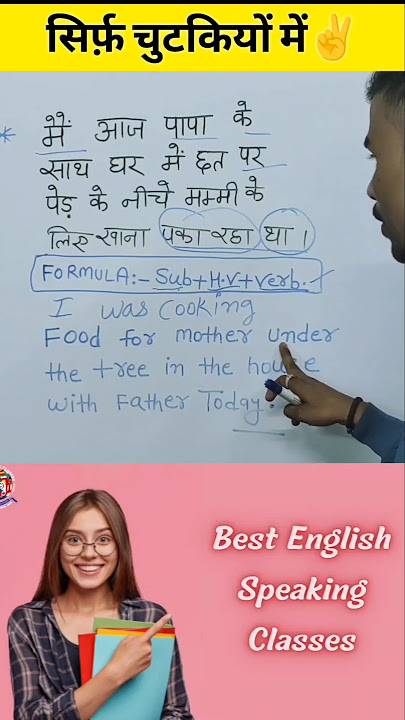 सिर्फ़ चुटकियों में✌️
* मैं आज पापा के
साथ घर में छत पर
पेड़ के नीचे मम्मी के
लिए खाना पका रहा था ।
FORMULA:- Sub+H.V+Verb.
I was cooking
Food for mother under
the tree in the house
with Father Today.
Best English
Speaking
Classes